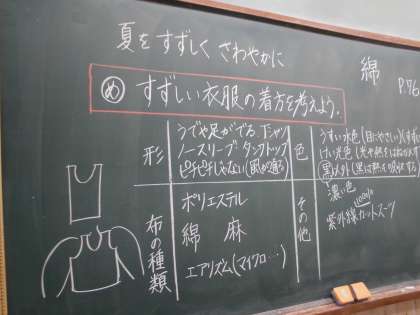 夏をすずしく さわやかに
綿
P.76
め すずしい衣服の着方を考えよう。
形
うでや足がでる Tシャツ
ノースリーブ タンクトップ
ピチピチじゃない(風が通る)
色
うすい水色(目にやさしい)
けい光色(光や熱をはね
黒以外(黒は熱
濃い色
布の種類
ポリエステル
綿 麻
エアリズム(マイクロ…)
その他
100%
紫外線カットスーツ